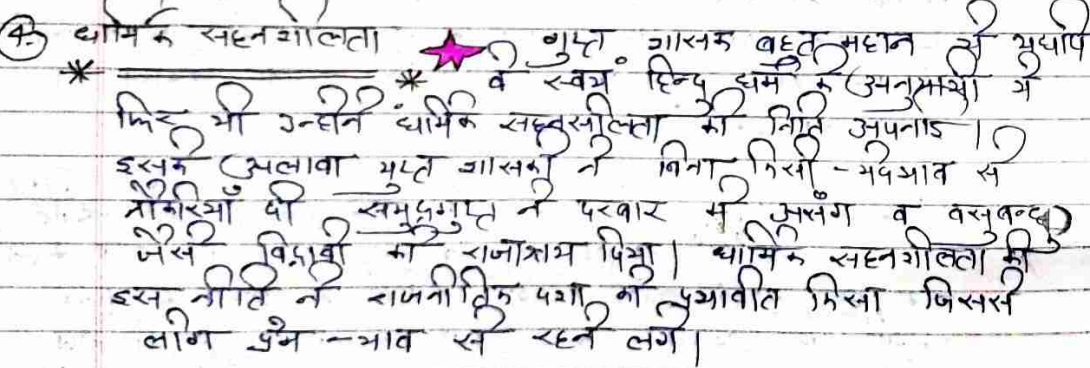 4. धार्मिक सहनशीलता गुप्त शासक बहुत महान थे यद्यपि
वे स्वयं हिन्दु धर्म के अनुयायी थे
फिर भी उन्होंने धार्मिक सहनसीलता की निति अपनाई।
इसके अलावा गुप्त शासकों ने बिना किसी - भेदभाव से
नौकरियाँ दी समुद्रगुप्त ने दरबार में असंग व वसुबन्दु
जैसे विद्वानों को राजाश्रय दिया। धार्मिक सहनशीलता की
इस नीति ने राजनीतिक दशा को प्रभावीत किया जिससे
लोग प्रेम - भाव से रहने लगे।